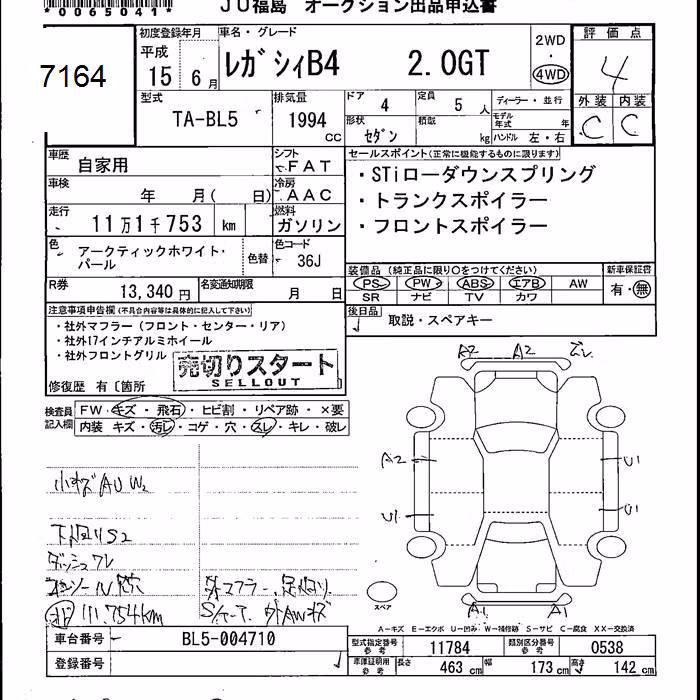 *0065041*
JU福島 オークション出品申込書
7164
初度登録年月
平成
15年 6月
車名・グレード
レガシィB4 2.0GT
2WD
・
4WD
評価点
4
外装 内装
C C
型式
TA-BL5
排気量
1994
CC
ドア 4
定員 5人
ディーラー・並行
形状
セダン
積載
kg
モデル年式 年
ハンドル 左・右
車歴
自家用
シフト
FAT
車検
年 月( 日)
冷房
AAC
走行
11万1千753 km
燃料
ガソリン
色
アークティックホワイト・
パール
色替
色コード
36J
R券
13,340円
名変通知期限
月 日
セールスポイント(正常に機能するものに限ります)
・STiローダウンスプリング
・トランクスポイラー
・フロントスポイラー
装備品 (純正品に限り○をつけてください)
PS PW ABS エアB AW
SR ナビ TV カワ
新車保証書
有・無
後日品
取説・スペアキー
注意事項申告欄(不具合内容等は具体的に記入して下さい)
・社外マフラー(フロント・センター・リア)
・社外17インチアルミホイール
・社外フロントグリル
売切りスタート
SELLOUT
修復歴 有〔箇所
検査員
記入欄
FW キズ・飛石・ヒビ割・リペア跡・×要
内装 キズ・汚レ・コゲ・穴・スレ・キレ・破レ
小キズAU W2
下廻りS2
111.754km
A2 A2
A2
U1
U1
U1
A1 A1
スペア
A−キズ E−エクボ U−凹み W−補修跡 S−サビ C−腐食 XX−交換済
車台番号
BL5-004710
登録番号
型式指定番号
参考
11784
類別区分番号
参考
0538
車庫証明用
参考
長さ 463 cm 幅 173 cm 高さ 142 cm